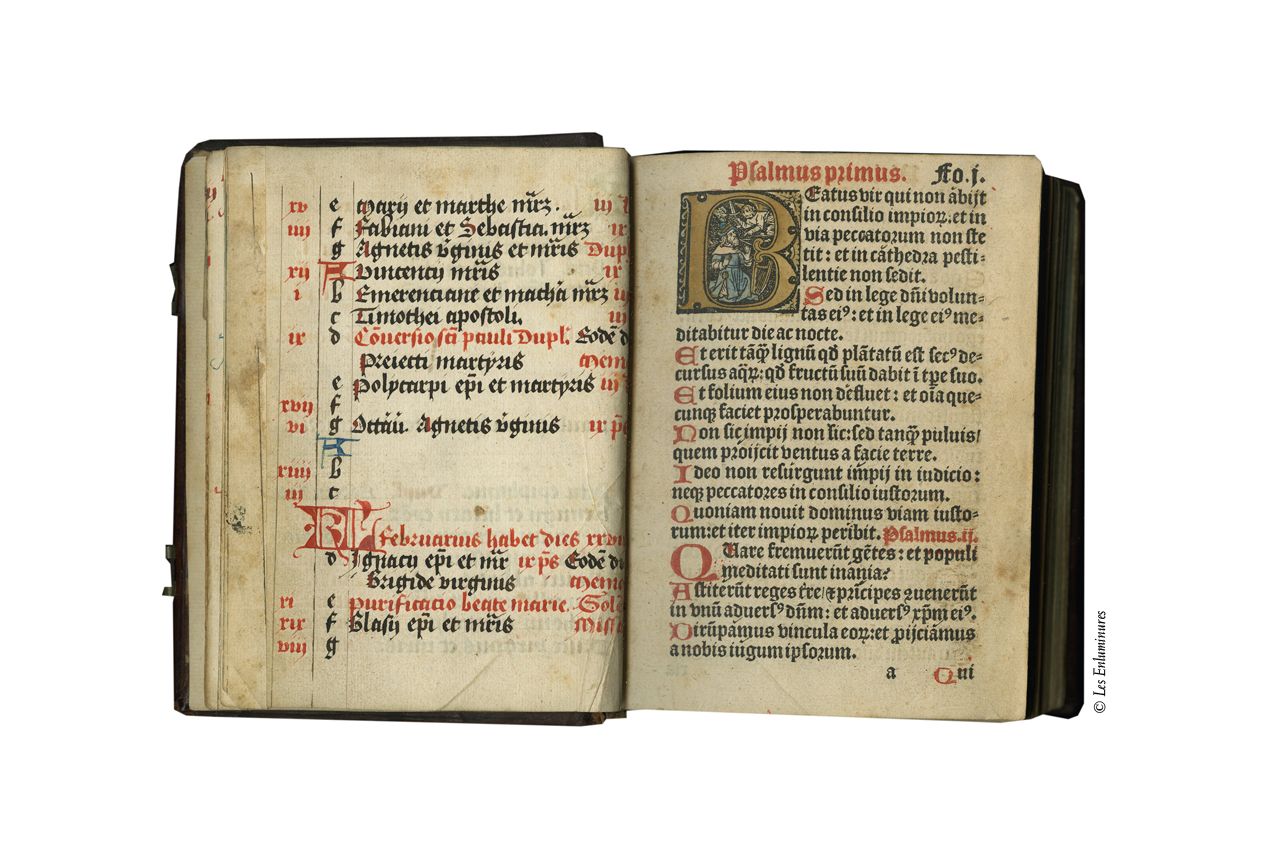 xv e Marij et marthe mr̄z. iij
iiij f Fabiani et Sebastia. mr̄z ix
g Agnetis v̄ginis et mr̄is Dupl
xij A Vincentij mr̄is ix
i b Emerenciane et macha mr̄z iij
c Timothei apostoli. iij
ix d Cōversio scī pauli Dupl. Eodē d
Preiecti martyris mem
e Policarpi ep̄i et martyris iij
xvij f
vi g Octāū Agnetis v̄ginis ix p̄s
A
xiiij b
iij c
KL Februarius habet dies xxvii
d Ignacij ep̄i et mr̄ ix p̄s Eodē d
Brigide virginis mem
xi e purificacio beate marie. Sole
xix f Blasij ep̄i et mr̄is Missa
viij g
Psalmus primus. Fo. j.
BEatus vir qui non abijt
in consilio impioꝝ: et in
via peccatorum non ste
tit: et in cathedra pesti-
lentie non sedit.
Sed in lege dn̄i volun-
tas eiꝰ: et in lege eiꝰ me-
ditabitur die ac nocte.
Et erit tāꝙ lignū qd̄ plātatū est secꝰ de-
cursus aqꝝ: qd̄ fructū suū dabit ī tp̄e suo.
Et folium eius non defluet: et oīa que-
cunqꝫ faciet prosperabuntur.
Non sic impij non sic: sed tanꝙ puluis/
quem proijcit ventus a facie terre.
Ideo non resurgunt impij in iudicio:
neqꝫ peccatores in consilio iustorum.
Quoniam nouit dominus viam iusto-
rum: et iter impioꝝ peribit. Psalmus. ij.
QUare fremuerūt gētes: et populi
meditati sunt inania?
Astiterūt reges t̄re/ ⁊ prīcipes ꝯuenerūt
in vnū aduersꝰ dn̄m: et aduersꝰ xp̄m eiꝰ.
Dirūpamus vincula eoꝝ: et ꝓijciamus
a nobis iugum ipsorum.
a Qui
© Les Enluminures